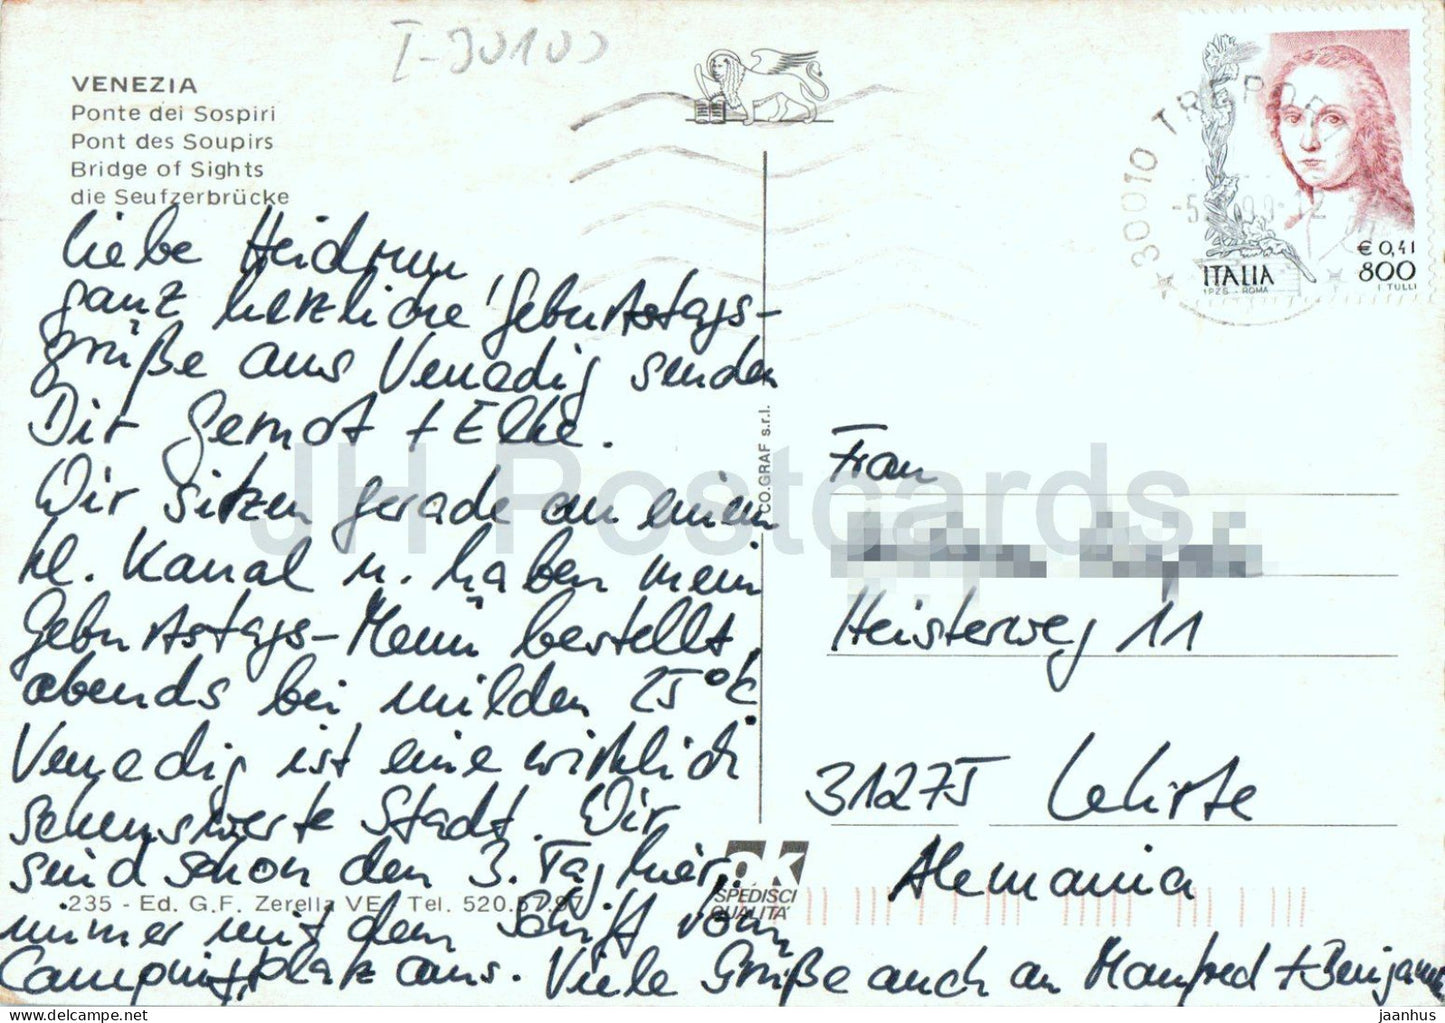 I-30100
VENEZIA
Ponte dei Sospiri
Pont des Soupirs
Bridge of Sights
die Seufzerbrücke
Liebe Heidrun
ganz herzliche Geburtstags-
grüße aus Venedig senden
Dir Gernot + Elke.
Wir sitzen gerade an einem
kl. Kanal u. haben mein
Geburtstags-Menü bestellt,
abends bei milden 25°C
Venedig ist eine wirklich
sehenswerte Stadt. Wir
sind schon den 3. Tag hier,
immer mit dem Schiff vom
Campingplatz aus. Viele Grüße auch an Manfred + Benjamin
235 - Ed. G.F. Zerella VE Tel. 520.57.97
CO.GRAF s.r.l.
OK
SPEDISCI
QUALITA'
30010 TREPOR
ITALIA
I.P.Z.S. - ROMA
€ 0,41
800
I. TULLI
Frau
Heisterweg 11
31275 Lehrte
Alemania
JH Postcards
jaanhus